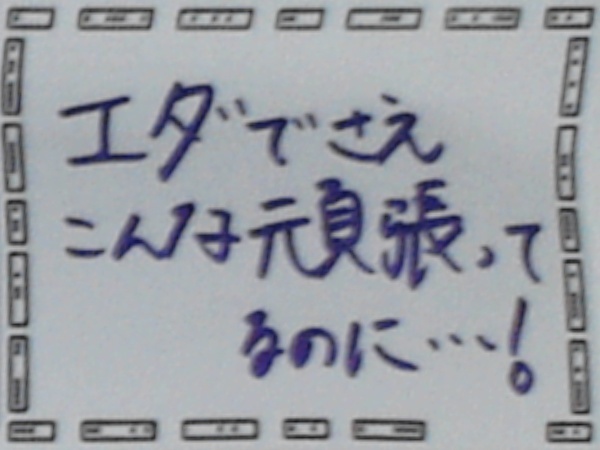 エダでさえ
こんな頑張って
るのに…!